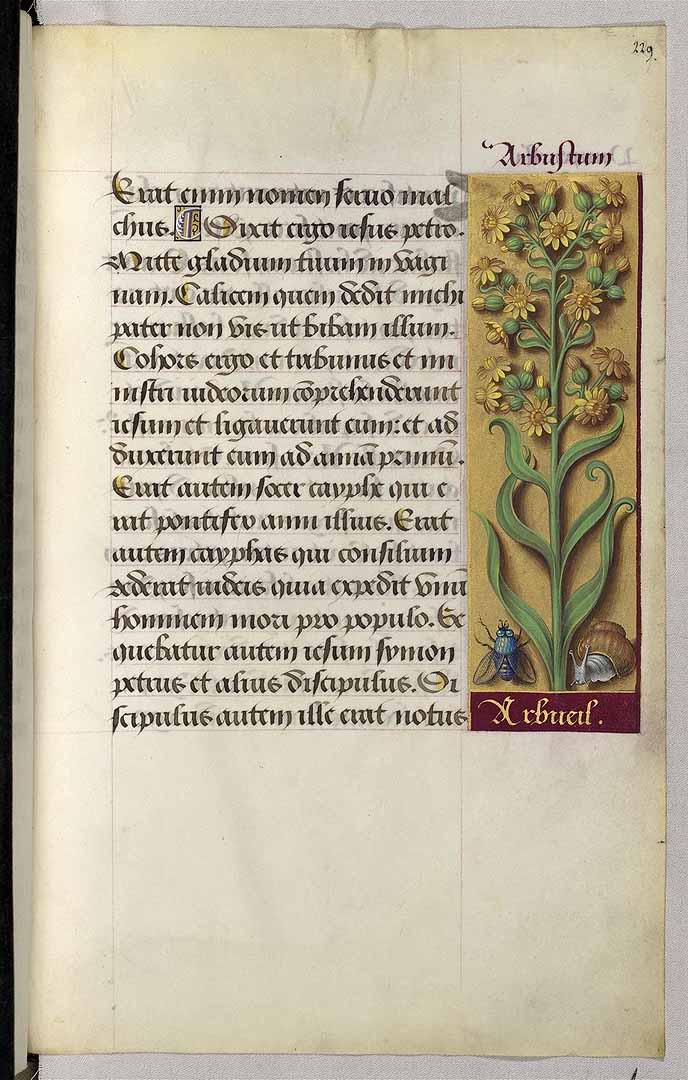 229.
Arbustum
Erat enim nomen servo mal
chus. Dixit ergo iesus petro.
Mitte gladium tuum in vagi
nam. Calicem quem dedit michi
pater non vis ut bibam illum.
Cohors ergo et tribunus et mi
nistri iudeorum cōprehenderunt
iesum et ligaverunt eum: et ad
duxerunt eum ad annā primū.
Erat autem socer cayphe qui e
rat pontifex anni illius. Erat
autem cayphas qui consilium
dederat iudeis quia expedit unū
hominem mori pro populo. Se
quebatur autem iesum symon
petrus et alius discipulus. Di
scipulus autem ille erat notus
Arbueil.